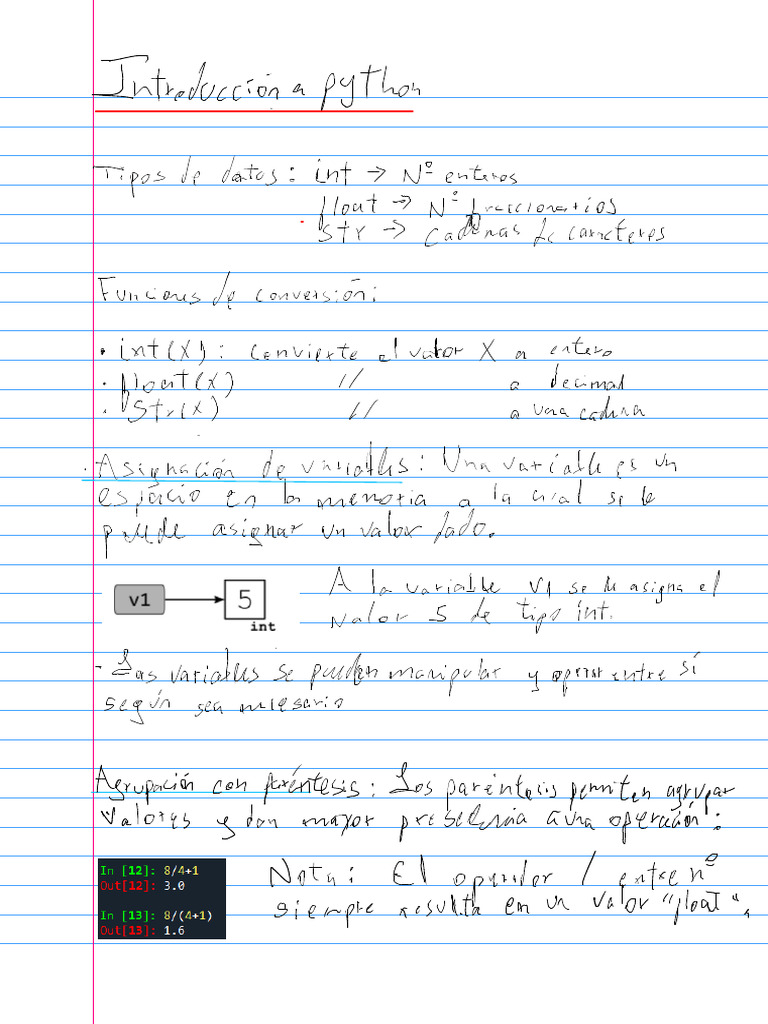 Introducción a python
Tipos de datos: int → Nº enteros
float → Nº fraccionarios
str → Cadenas de caracteres
Funciones de conversión:
• int(X): convierte el valor X a entero
• float(X) // a decimal
• Str(X) // a una cadena
• Asignación de variables: Una variable es un
espacio en la memoria a la cual se le
puede asignar un valor dado.
v1 → 5
int
A la variable V1 se le asigna el
valor 5 de tipo int.
- Las variables se pueden manipular y operar entre sí
según sea nesesario
Agrupación con paréntesis: Los paréntesis permiten agrupar
valores y dan mayor presedencia a una operación:
In [12]: 8/4+1
Out[12]: 3.0
In [13]: 8/(4+1)
Out[13]: 1.6
Nota: El operador / entre nº
siempre resulta en un valor "float".